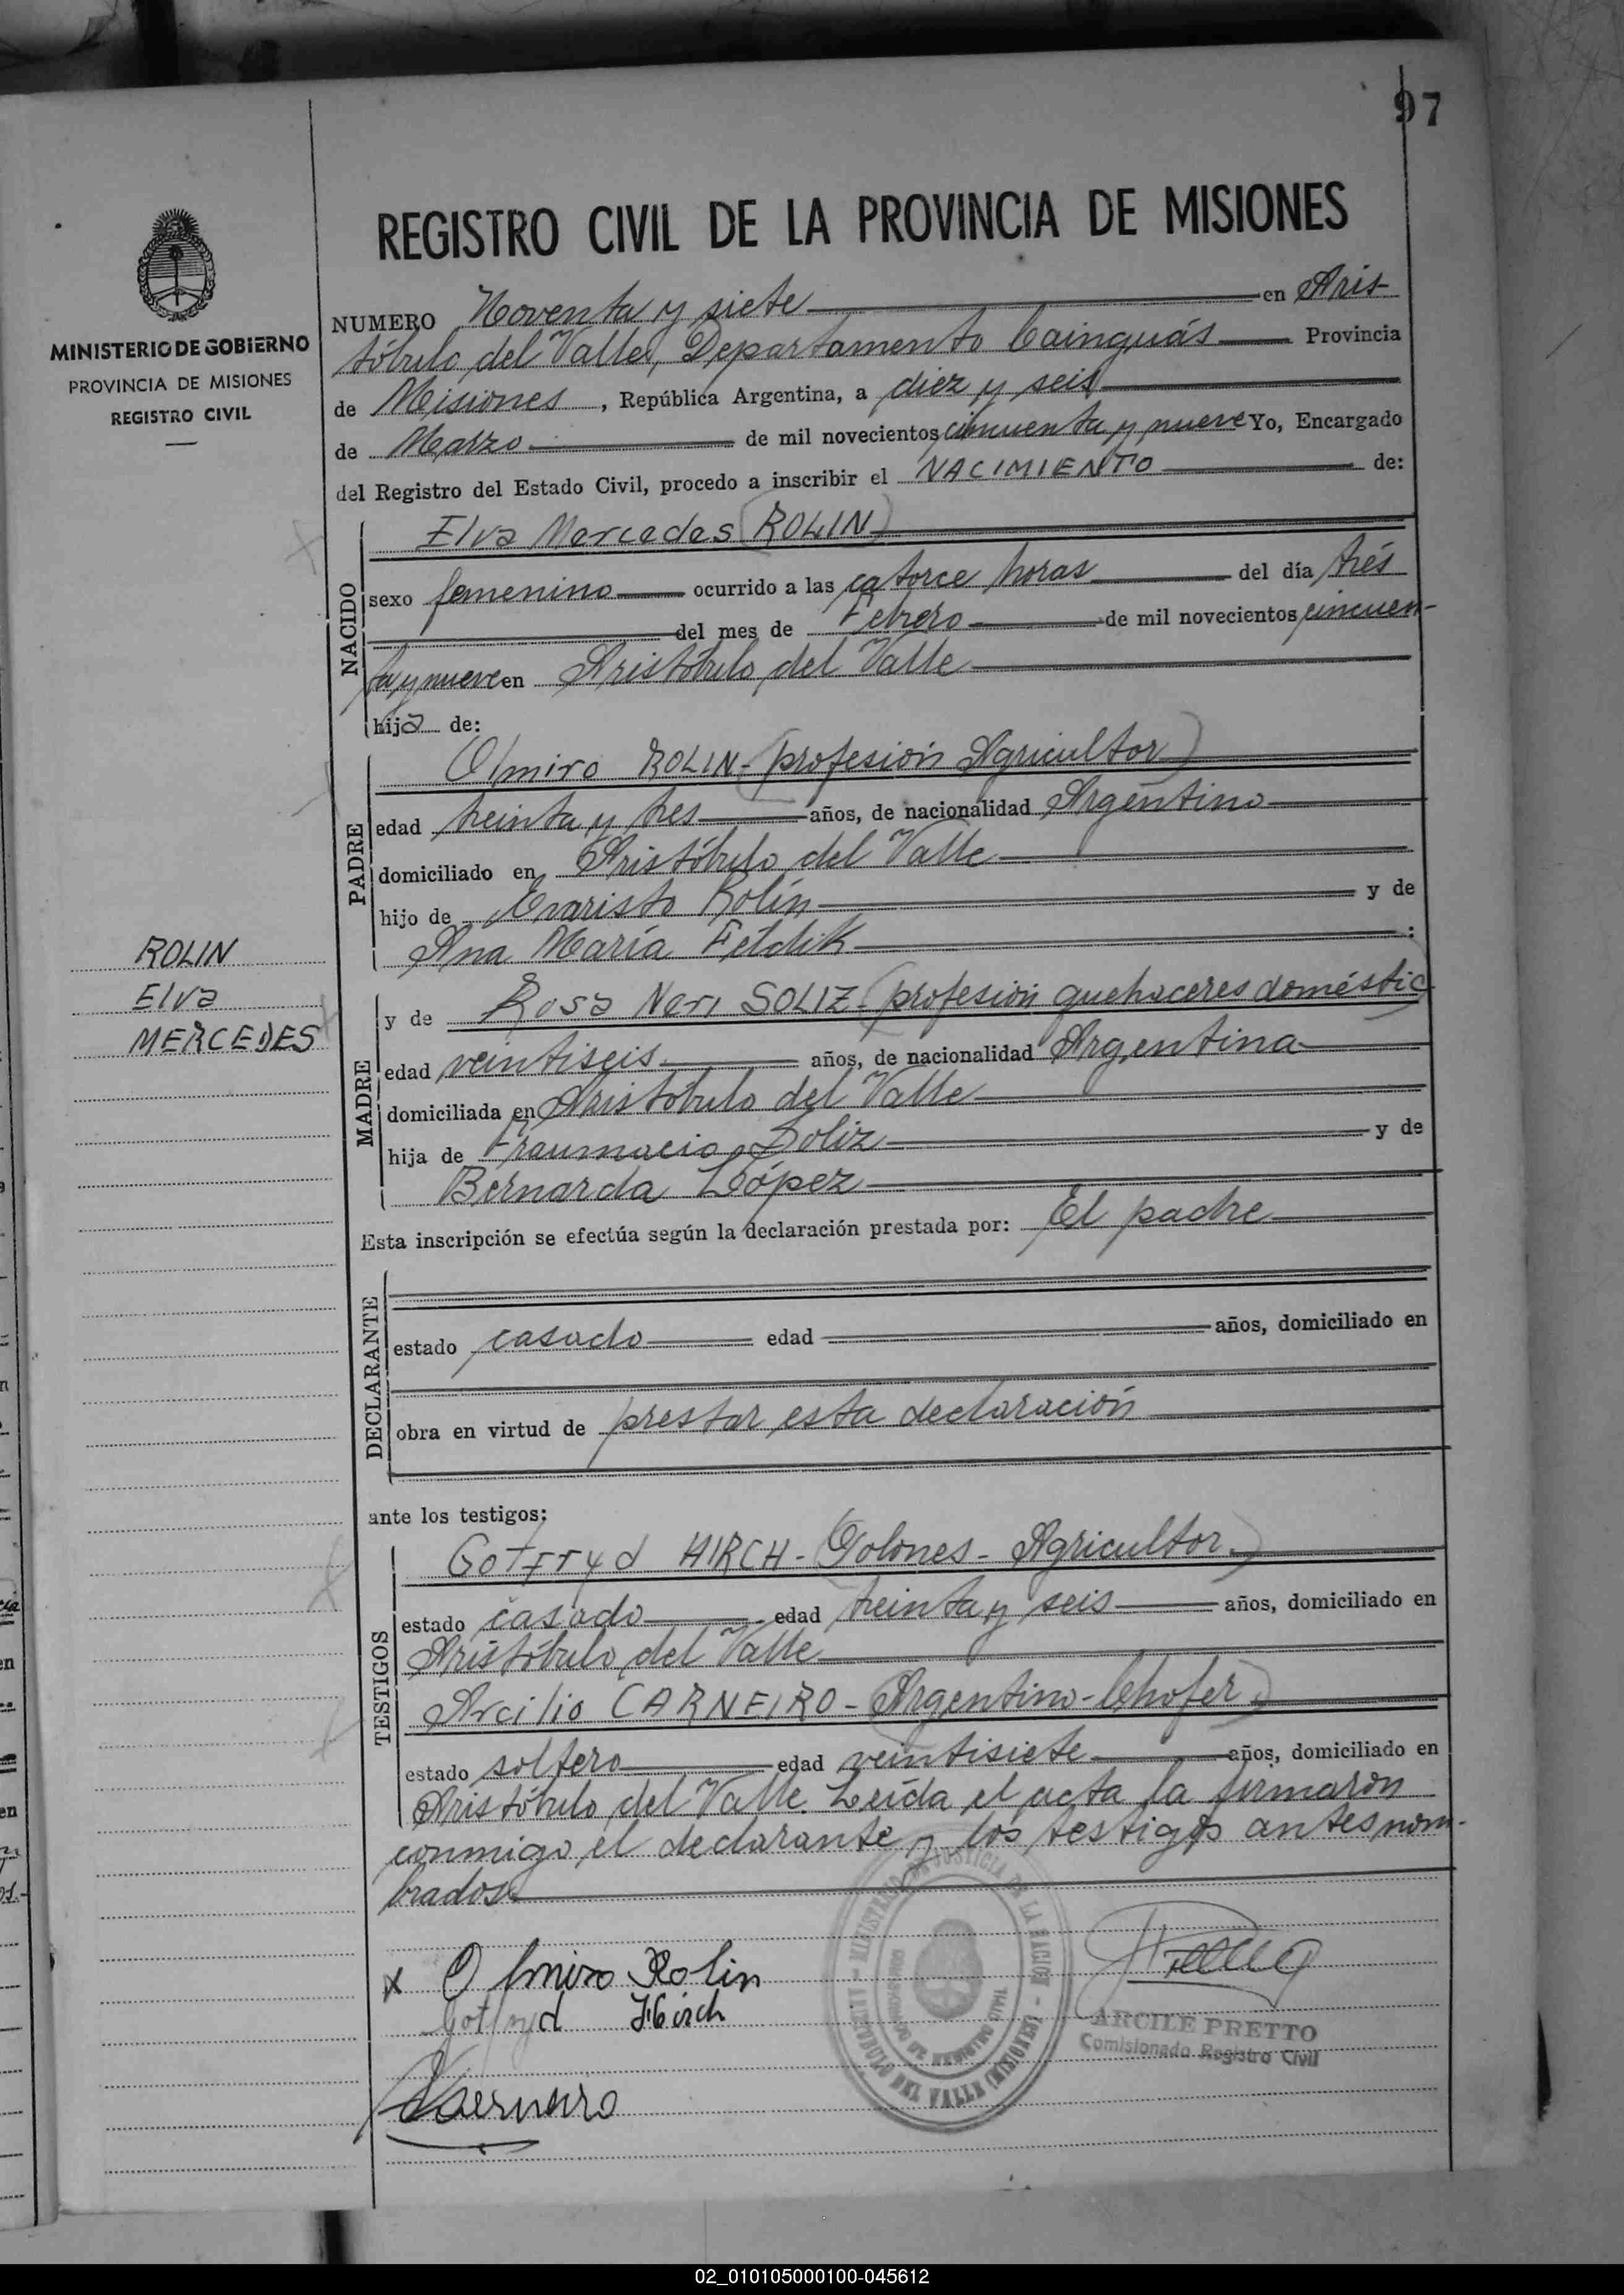 97
REGISTRO CIVIL DE LA PROVINCIA DE MISIONES
MINISTERIO DE GOBIERNO
PROVINCIA DE MISIONES
REGISTRO CIVIL
NUMERO Noventa y siete en Aris-
tóbulo del Valle, Departamento Cainguás Provincia
de Misiones, República Argentina, a diez y seis
de Marzo de mil novecientos cincuenta y nueve Yo, Encargado
del Registro del Estado Civil, procedo a inscribir el NACIMIENTO de:
NACIDO
Elva Mercedes (ROLIN)
sexo femenino ocurrido a las catorce horas del día trés
del mes de Febrero de mil novecientos cincuen-
ta y nueve en Aristóbulo del Valle
hija de:
PADRE
Olmiro ROLIN-(profesión Agricultor)
edad treinta y tres años, de nacionalidad Argentino
domiciliado en Aristóbulo del Valle
hijo de Evaristo Rolín y de
Ana María :
ROLIN
Elva
MERCEDES
MADRE
y de Rosa Neri SOLIZ-(profesión quehaceres doméstic)
edad veintiseis años, de nacionalidad Argentina
domiciliada en Aristóbulo del Valle
hija de Soliz y de
Bernarda López
Esta inscripción se efectúa según la declaración prestada por: El padre
DECLARANTE
estado casado edad años, domiciliado en
obra en virtud de prestar esta declaración
ante los testigos:
TESTIGOS
Gotfryd HIRCH-(Polones-Agricultor.)
estado casado edad treinta y seis años, domiciliado en
Aristóbulo del Valle
Arcilio CARNEIRO-(Argentino-Chofer.)
estado soltero edad veintisiete años, domiciliado en
Aristóbulo del Valle. Leída el acta la firmaron
conmigo el declarante y los testigos antes nom-
brados.
x Olmiro Rolin
Gotfryd Hirch
ARCILE PRETTO
Comisionado Registro Civil
ARISTOBULO DEL VALLE (MISIONES)
02_010105000100-045612